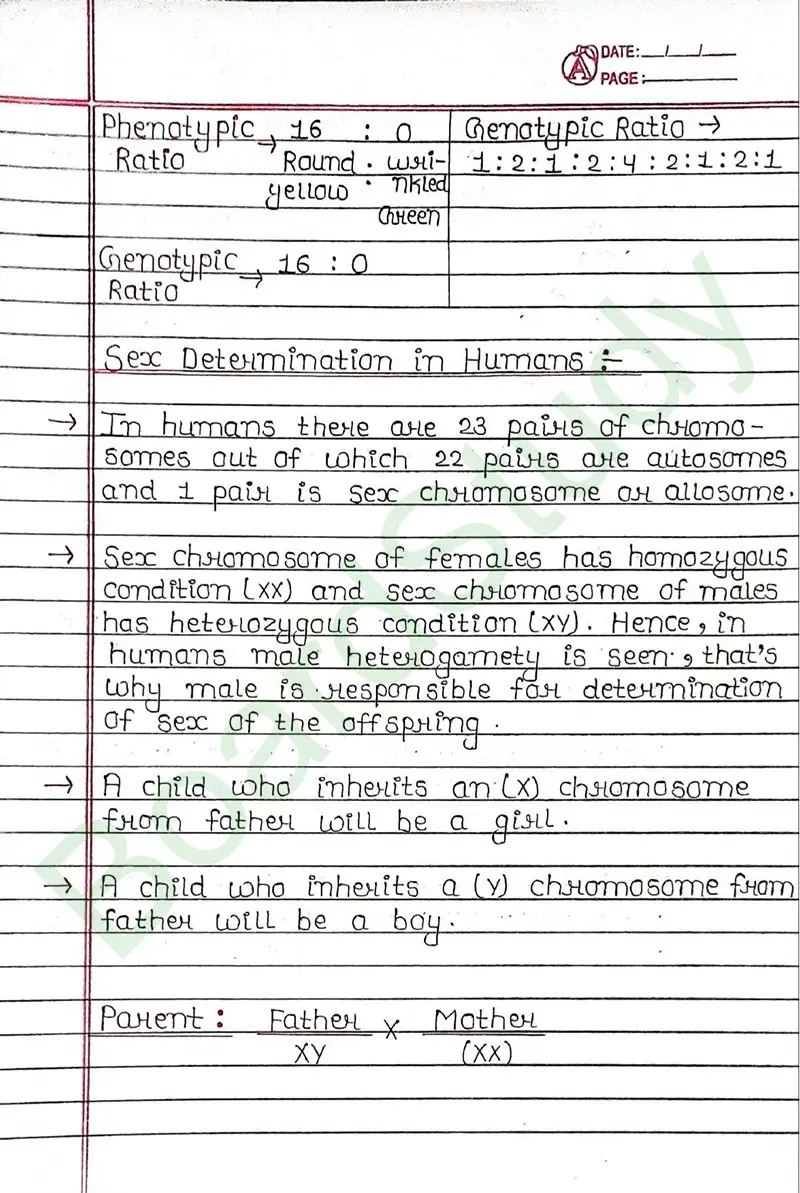 DATE:__/__/__
PAGE:______
Phenotypic → 16 : 0
Ratio Round . wri-
yellow . nkled
Green
Genotypic → 16 : 0
Ratio
Genotypic Ratio →
1:2:1:2:4:2:1:2:1
Sex Determination in Humans :-
→ In humans there are 23 pairs of chromo-
somes out of which 22 pairs are autosomes
and 1 pair is sex chromosome or allosome.
→ Sex chromosome of females has homozygous
condition (XX) and sex chromosome of males
has heterozygous condition (XY). Hence, in
humans male heterogamety is seen, that's
why male is responsible for determination
of sex of the offspring.
→ A child who inherits an (X) chromosome
from father will be a girl.
→ A child who inherits a (Y) chromosome from
father will be a boy.
Parent : Father X Mother
XY (XX)
BoardStudy